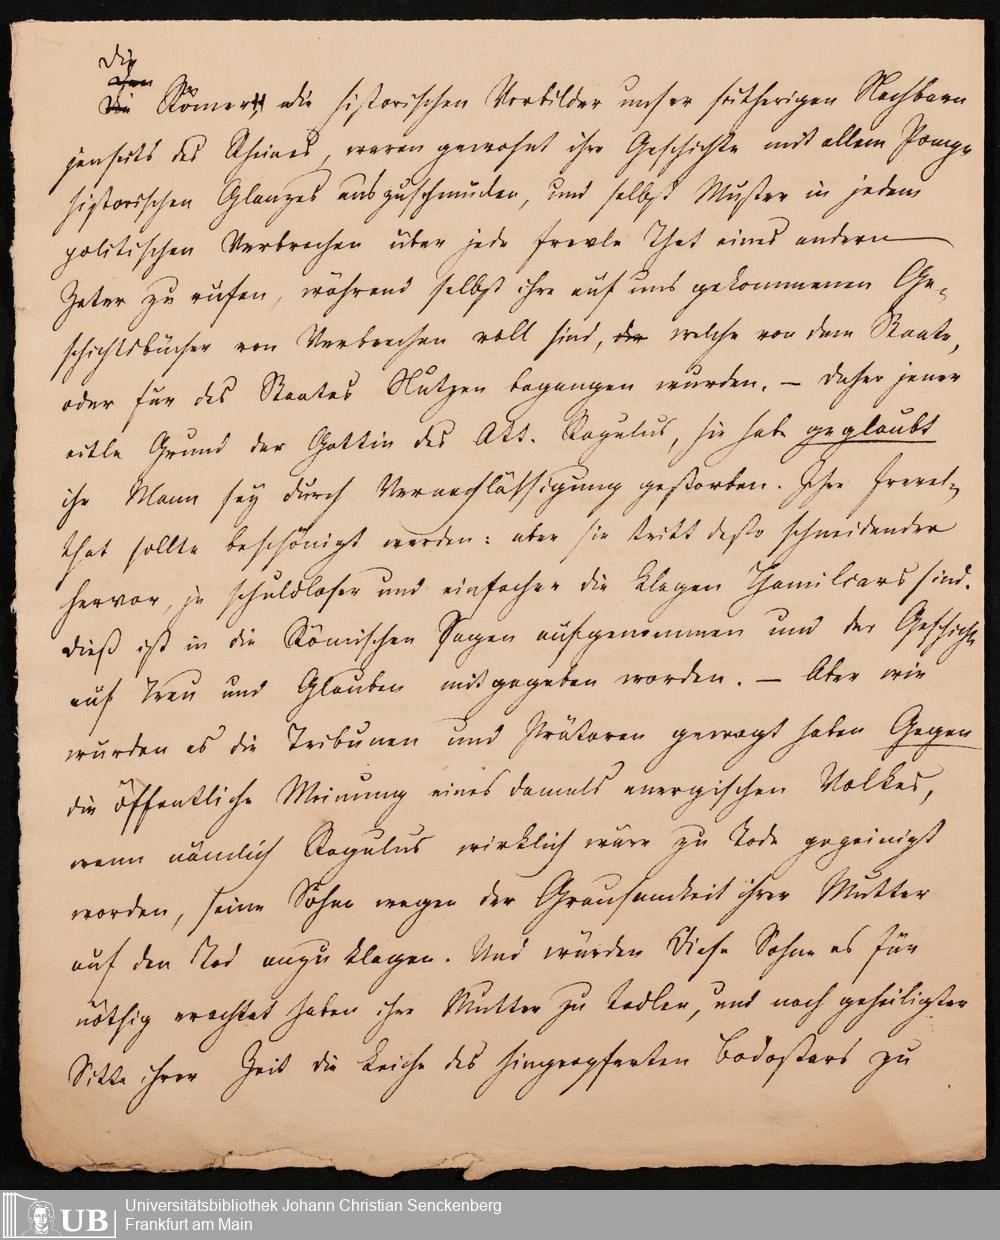 Die
Römer, die historischen Vorbilder unser seitherigen Nachbarn
jenseits des Rheines, waren gewohnt ihre Geschichte mit allem Pompe
historischen Glanzes auszuschmücken, und selbst Muster in jedem
politischen Verbrechen über jede frevle That eines andern
Zeter zu rufen, während selbst ihre auf uns gekommenen Ge-
schichtsbücher von Verbrechen voll sind, welche von dem Staate,
oder für des Staates Nutzen begangen wurden. – Daher jener
eitle Grund der Gattin des Att. Regulus, sie habe geglaubt
ihr Mann sey durch Vernachlässigung gestorben. Ihre Frevel-
that sollte beschönigt werden: aber sie tritt desto schneidender
hervor, je schuldloser und einfacher die Klagen Hamilcars sind.
Dieß ist in die Römischen Sagen aufgenommen und der Geschichte
auf Treu und Glauben mitgegeben worden. – Aber wie
würden es die Tribunen und Prätoren gewagt haben Gegen
die öffentliche Meinung eines damals energischen Volkes,
wenn nämlich Regulus wirklich wäre zu Tode gepeinigt
worden, seine Söhne wegen der Grausamkeit ihrer Mutter
auf den Tod anzuklagen. Und würden diese Söhne es für
nöthig erachtet haben ihre Mutter zu tadlen, und nach geheiligter
Sitte ihrer Zeit die Leiche des hingeopferten Bodostars zu
UB
Universitätsbibliothek Johann Christian Senckenberg
Frankfurt am Main